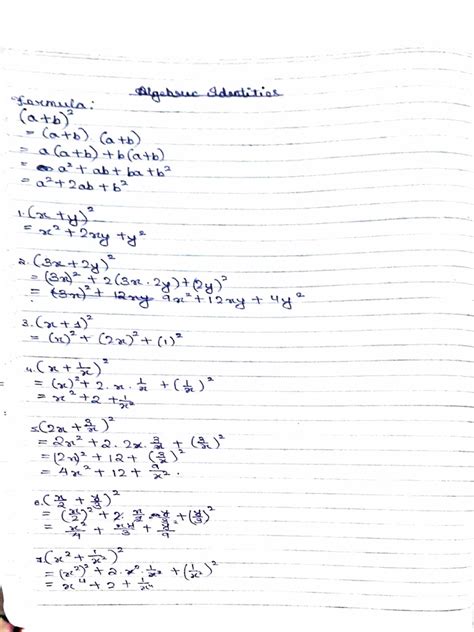 Algebraic Identities
Formula:
(a+b)²
= (a+b) (a+b)
= a(a+b)+b(a+b)
= a²+ab+ba+b²
= a²+2ab+b²
1. (x+y)²
= x²+2xy+y²
2. (3x+2y)²
= (3x)²+2(3x·2y)+(2y)²
= (3x)²+12xy 9x²+12xy+4y²
3. (x+1)²
= (x)²+(2x)²+(1)²
4. (x+1/x)²
= (x)²+2·x·1/x+(1/x)²
= x²+2+1/x²
(2x+3/x)²
= 2x²+2·2x·3/x+(3/x)²
= (2x)²+12+(3/x)²
= 4x²+12+9/x².
6. (x/2+y/3)²
= (x/2)²+2·x/2·y/3+(y/3)²
= x²/4+xy/3+y²/9
7. (x²+1/x²)²
= (x²)²+2·x²·1/x²+(1/x²)²
= x⁴+2+1/x⁴